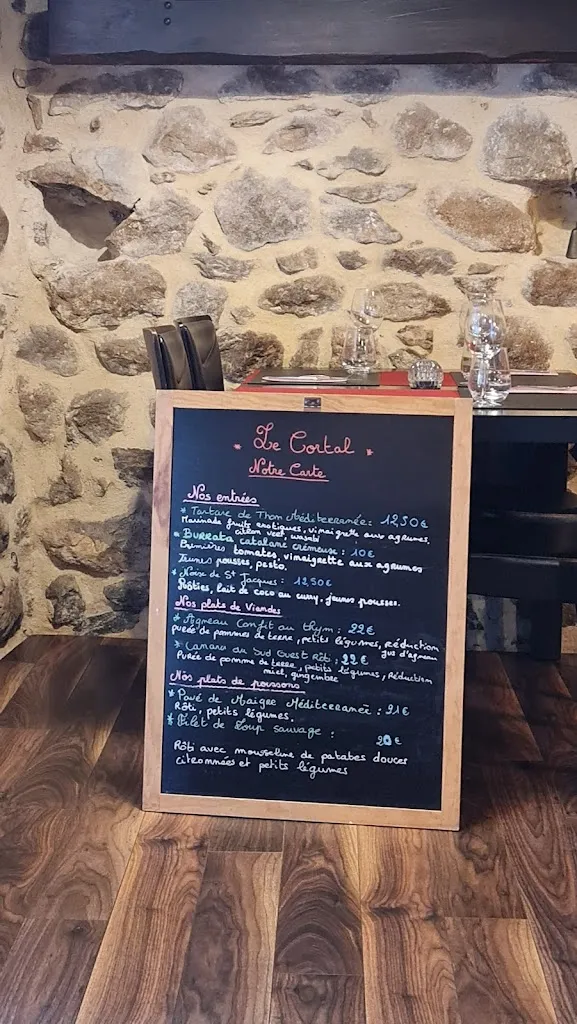 * Le Cortal *
Notre Carte
Nos entrées
* Tartare de Thon Méditerranée : 12,50 €
Marinade fruits exotiques, vinaigrette aux agrumes,
citron vert, wasabi
* Burrata catalane crémeuse : 10 €
Premières tomates, vinaigrette aux agrumes
Jeunes pousses, pesto.
* Noix de St Jacques : 12,50 €
Rôties, lait de coco au curry, jeunes pousses.
Nos plats de Viandes
* Agneau Confit au thym : 22 €
purée de pommes de terre, petits légumes, Réduction
jus d'agneau
* Canard du Sud Ouest Rôti : 22 €
Purée de pomme de terre, petits légumes, Réduction
miel, gingembre
Nos plats de poissons
* Pavé de Maigre Méditerranée : 21 €
Rôti, petits légumes.
* Filet de Loup sauvage :
€
Rôti avec mousseline de patates douces
citronnées et petits légumes